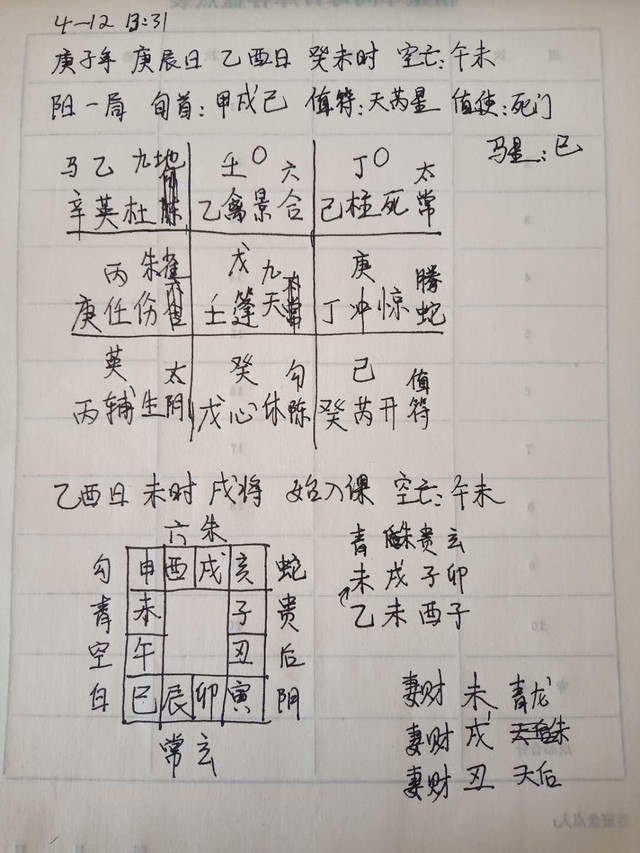 4-12 13:31
庚子年 庚辰日 乙酉日 癸未时 空亡:午未
阳一局 旬首:甲戌己 值符:天芮星 值使:死门
马星:巳
马 乙 九地 壬 〇 六 丁 〇 太
辛英杜 乙禽景合 己柱死常
丙 朱雀 戊 九 庚 腾
庚任伤 壬蓬天 丁冲惊蛇
英 太 癸 勾 己 值
丙辅生阴 戊心休陈 癸芮开符
乙酉日 未时 戌将 始入课 空亡:午未
六 朱
勾 申 酉 戌 亥 蛇
青 未 子 贵
空 午 丑 后
白 巳 辰 卯 寅 阴
常 玄
青 朱 贵 玄
未 戌 子 卯
乙 未 酉 子
妻财 未 青龙
妻财 戌 朱
妻财 丑 天后